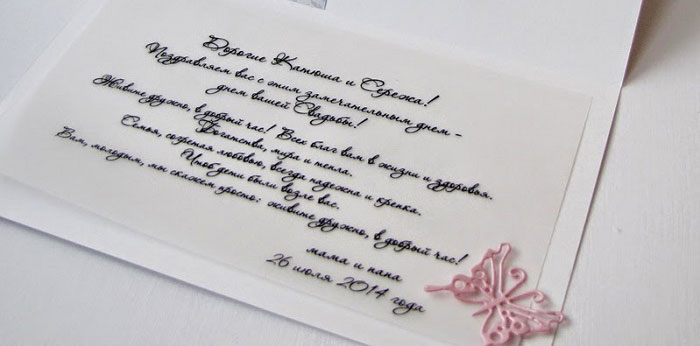 Дорогие Катюша и Сережа!
Поздравляем вас с этим замечательным днем -
днем вашей Свадьбы!
Живите дружно, в добрый час! Всех благ вам в жизни и здоровья.
Богатства, мира и тепла.
Семья, согретая любовью, всегда надежна и крепка.
Чтоб дети были возле вас.
Вам, молодым, мы скажем просто: живите дружно, в добрый час!
мама и папа
26 июля 2014 года